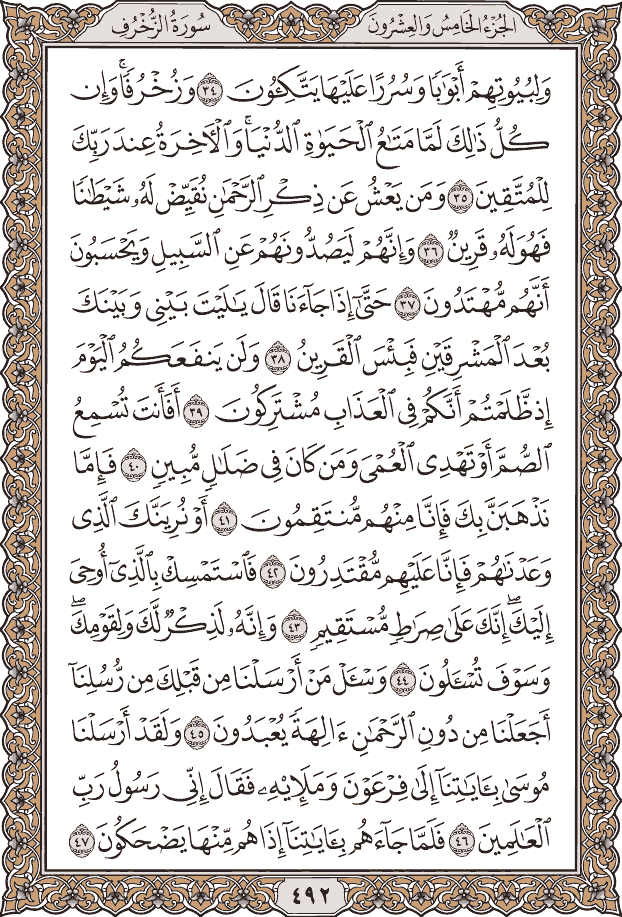 الجُزْءُ الخَامِسُ وَالعِشْرُونَ
سُورَةُ الزُّخْرُفِ
وَلِبُيُوتِهِمْ أَبْوَٰبًا وَسُرُرًا عَلَيْهَا يَتَّكِـُٔونَ ٣٤ وَزُخْرُفًاۚ وَإِن
كُلُّ ذَٰلِكَ لَمَّا مَتَـٰعُ ٱلْحَيَوٰةِ ٱلدُّنْيَاۚ وَٱلْـَٔاخِرَةُ عِندَ رَبِّكَ
لِلْمُتَّقِينَ ٣٥ وَمَن يَعْشُ عَن ذِكْرِ ٱلرَّحْمَـٰنِ نُقَيِّضْ لَهُۥ شَيْطَـٰنًا
فَهُوَ لَهُۥ قَرِينٌ ٣٦ وَإِنَّهُمْ لَيَصُدُّونَهُمْ عَنِ ٱلسَّبِيلِ وَيَحْسَبُونَ
أَنَّهُم مُّهْتَدُونَ ٣٧ حَتَّىٰٓ إِذَا جَآءَنَا قَالَ يَـٰلَيْتَ بَيْنِى وَبَيْنَكَ
بُعْدَ ٱلْمَشْرِقَيْنِ فَبِئْسَ ٱلْقَرِينُ ٣٨ وَلَن يَنفَعَكُمُ ٱلْيَوْمَ
إِذ ظَّلَمْتُمْ أَنَّكُمْ فِى ٱلْعَذَابِ مُشْتَرِكُونَ ٣٩ أَفَأَنتَ تُسْمِعُ
ٱلصُّمَّ أَوْ تَهْدِى ٱلْعُمْىَ وَمَن كَانَ فِى ضَلَـٰلٍ مُّبِينٍ ٤٠ فَإِمَّا
نَذْهَبَنَّ بِكَ فَإِنَّا مِنْهُم مُّنتَقِمُونَ ٤١ أَوْ نُرِيَنَّكَ ٱلَّذِى
وَعَدْنَـٰهُمْ فَإِنَّا عَلَيْهِم مُّقْتَدِرُونَ ٤٢ فَٱسْتَمْسِكْ بِٱلَّذِىٓ أُوحِىَ
إِلَيْكَۖ إِنَّكَ عَلَىٰ صِرَٰطٍ مُّسْتَقِيمٍ ٤٣ وَإِنَّهُۥ لَذِكْرٌ لَّكَ وَلِقَوْمِكَۖ
وَسَوْفَ تُسْـَٔلُونَ ٤٤ وَسْـَٔلْ مَنْ أَرْسَلْنَا مِن قَبْلِكَ مِن رُّسُلِنَآ
أَجَعَلْنَا مِن دُونِ ٱلرَّحْمَـٰنِ ءَالِهَةً يُعْبَدُونَ ٤٥ وَلَقَدْ أَرْسَلْنَا
مُوسَىٰ بِـَٔايَـٰتِنَآ إِلَىٰ فِرْعَوْنَ وَمَلَإِي۟هِۦ فَقَالَ إِنِّى رَسُولُ رَبِّ
ٱلْعَـٰلَمِينَ ٤٦ فَلَمَّا جَآءَهُم بِـَٔايَـٰتِنَآ إِذَا هُم مِّنْهَا يَضْحَكُونَ ٤٧
٤٩٢